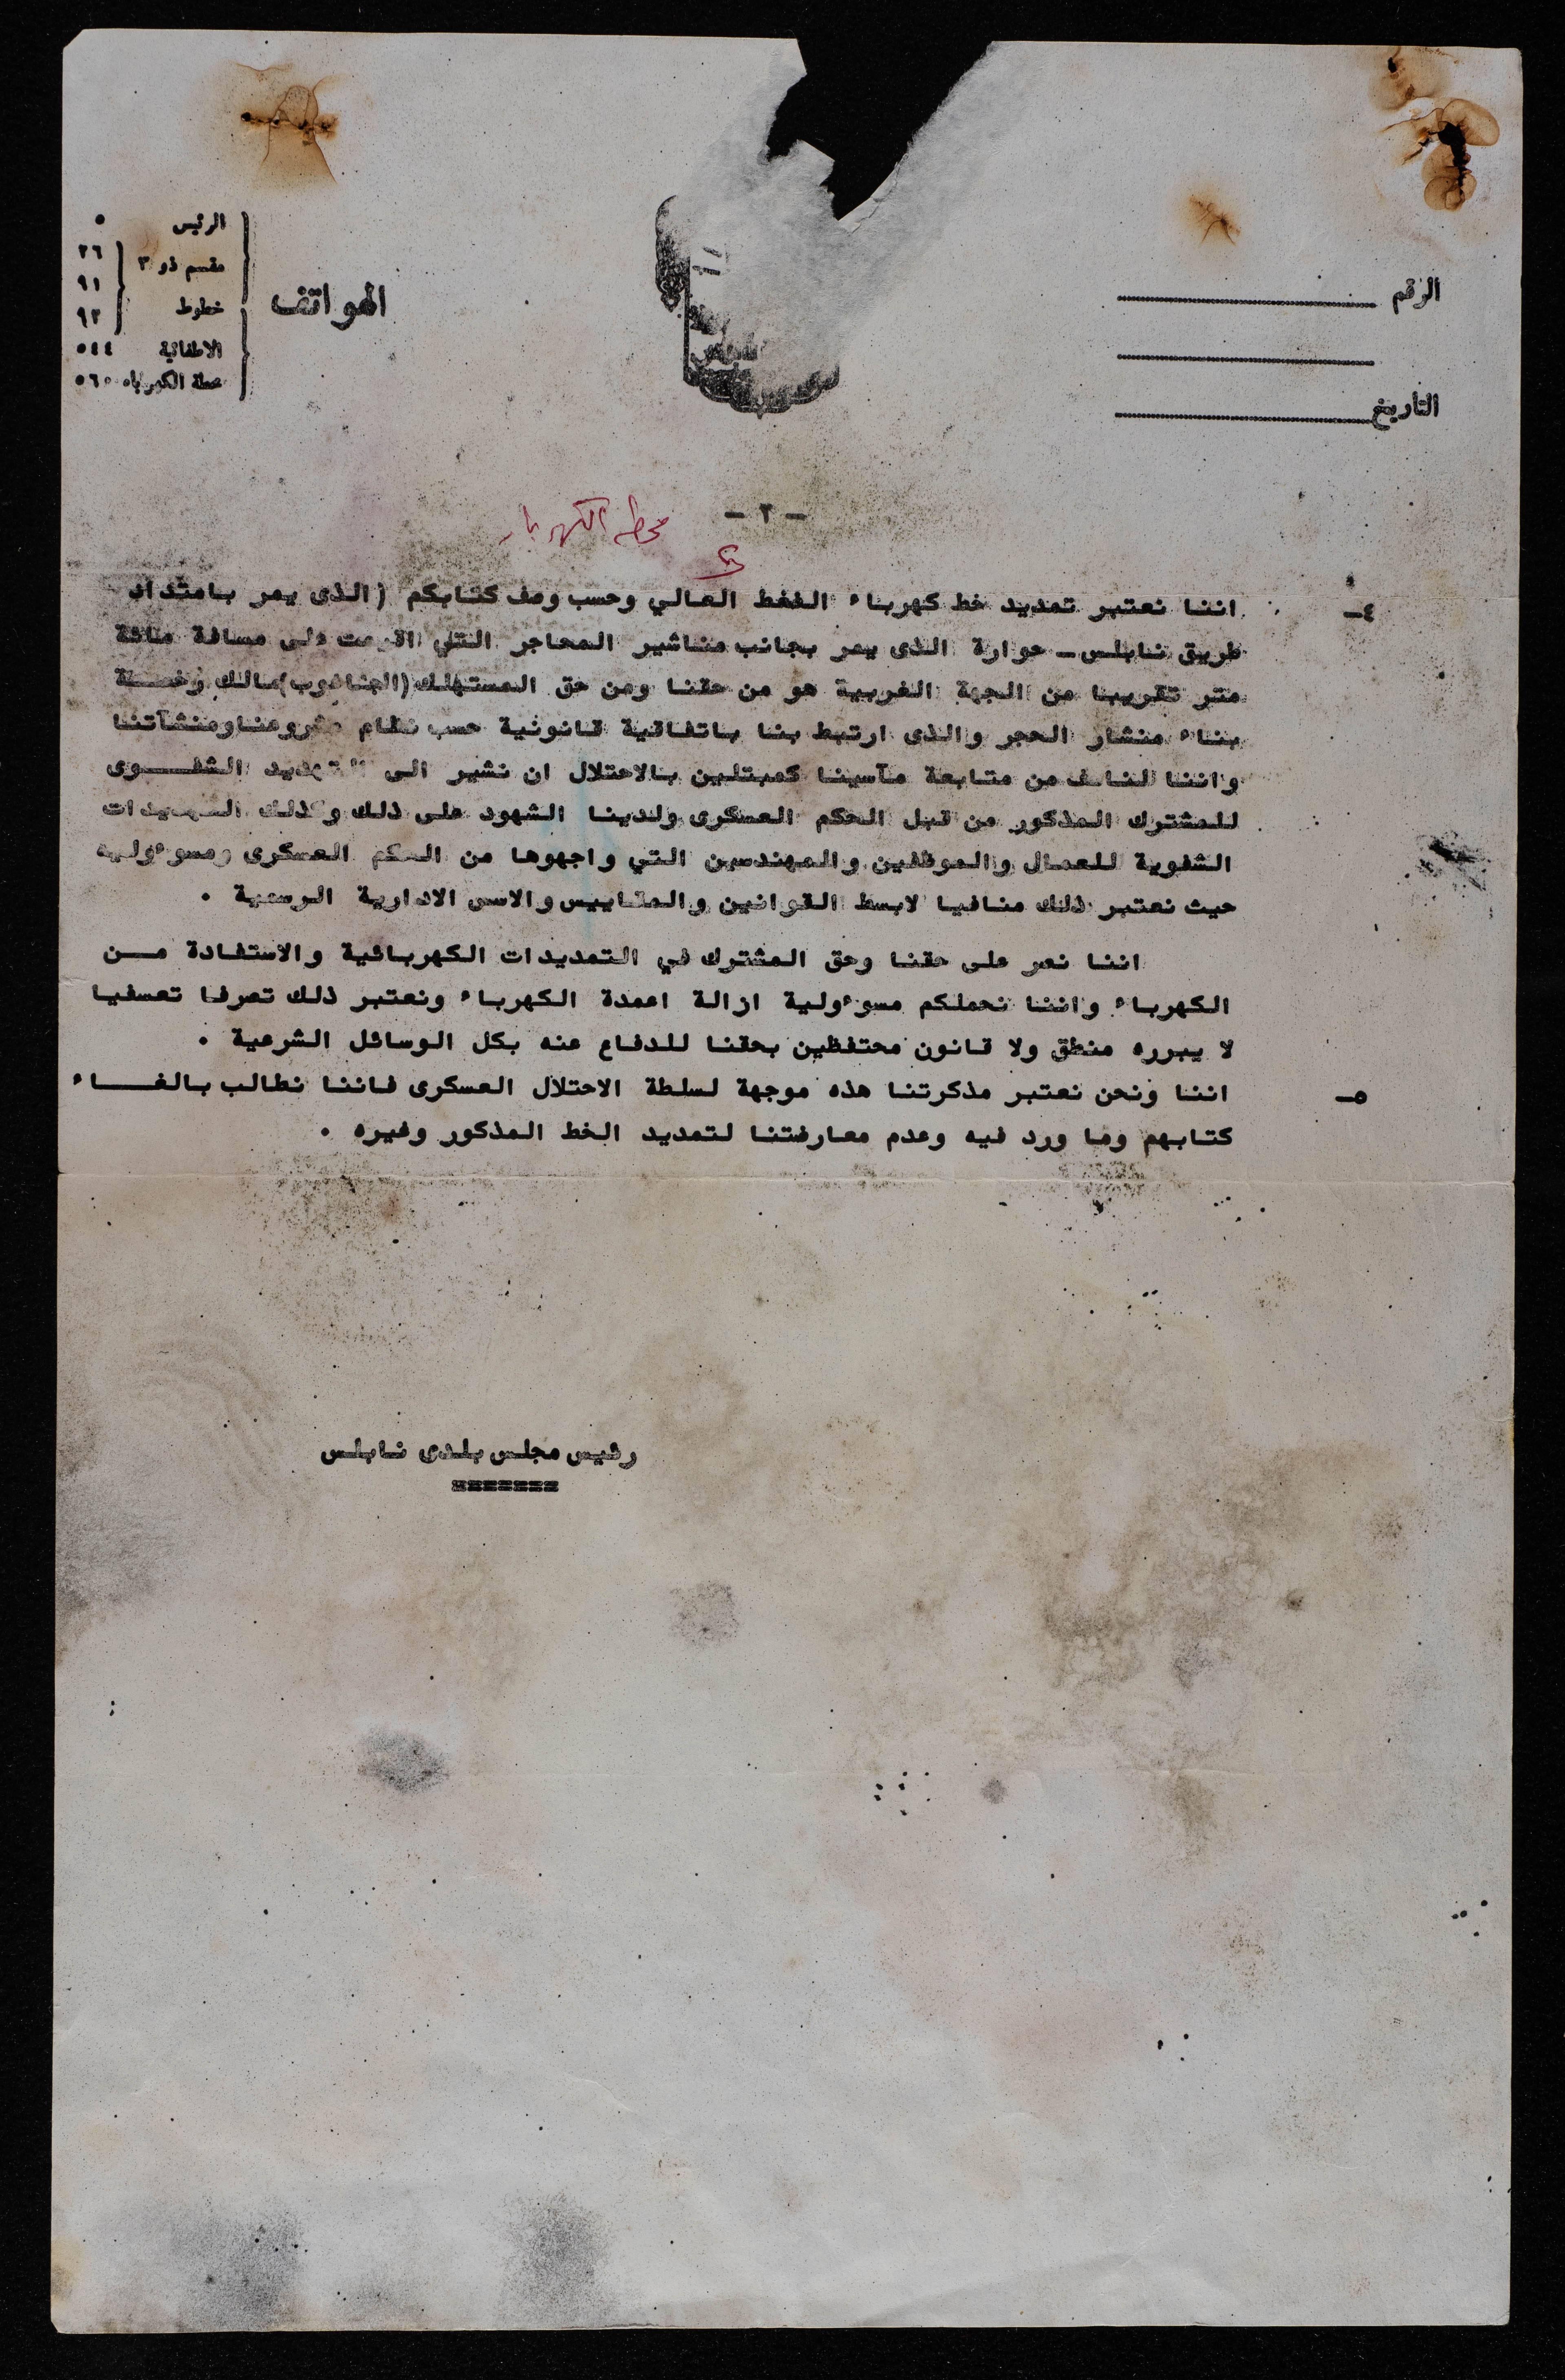 الرقم
التاريخ
الهواتف
الرئيس ٥
مقسم ذو ٣ خطوط ٢٦ ٩١ ٩٢
الاطفائية ٥٤٤
محطة الكهرباء ٥٦٠
- ٢ -
محطه الكهرباء
٤- اننا نعتبر تمديد خط كهرباء الضغط العالي وحسب وصف كتابكم (الذى يمر بامتداد
طريق نابلس - حوارة الذى يمر بجانب مناشير المحاجر التي اقيمت على مسافة مائة
متر تقريبا من الجهة الغربية هو من حقنا ومن حق المستهلك مالك رخصة
بناء منشار الحجر والذى ارتبط بنا باتفاقية قانونية حسب نظام مشروعنا ومنشآتنا
واننا لنأسف من متابعة مآسينا كمبتلين بالاحتلال ان نشير الى التهديد الشفوى
للمشترك المذكور من قبل الحكم العسكرى ولدينا الشهود على ذلك وكذلك التهديدات
الشفوية للعمال والموظفين والمهندسين التي واجهوها من الحكم العسكرى ومسوءوليه
حيث نعتبر ذلك منافيا لابسط القوانين والمقاييس والاسس الادارية الرسمية .
اننا نصر على حقنا وحق المشترك في التمديدات الكهربائية والاستفادة مــن
الكهرباء واننا نحملكم مسوءولية ازالة اعمدة الكهرباء ونعتبر ذلك تصرفا تعسفيا
لا يبرره منطق ولا قانون محتفظين بحقنا للدفاع عنه بكل الوسائل الشرعية .
٥- اننا ونحن نعتبر مذكرتنا هذه موجهة لسلطة الاحتلال العسكرى فاننا نطالب بالغــاء
كتابهم وما ورد فيه وعدم معارضتنا لتمديد الخط المذكور وغيره .
رئيس مجلس بلدى نابلس
=======